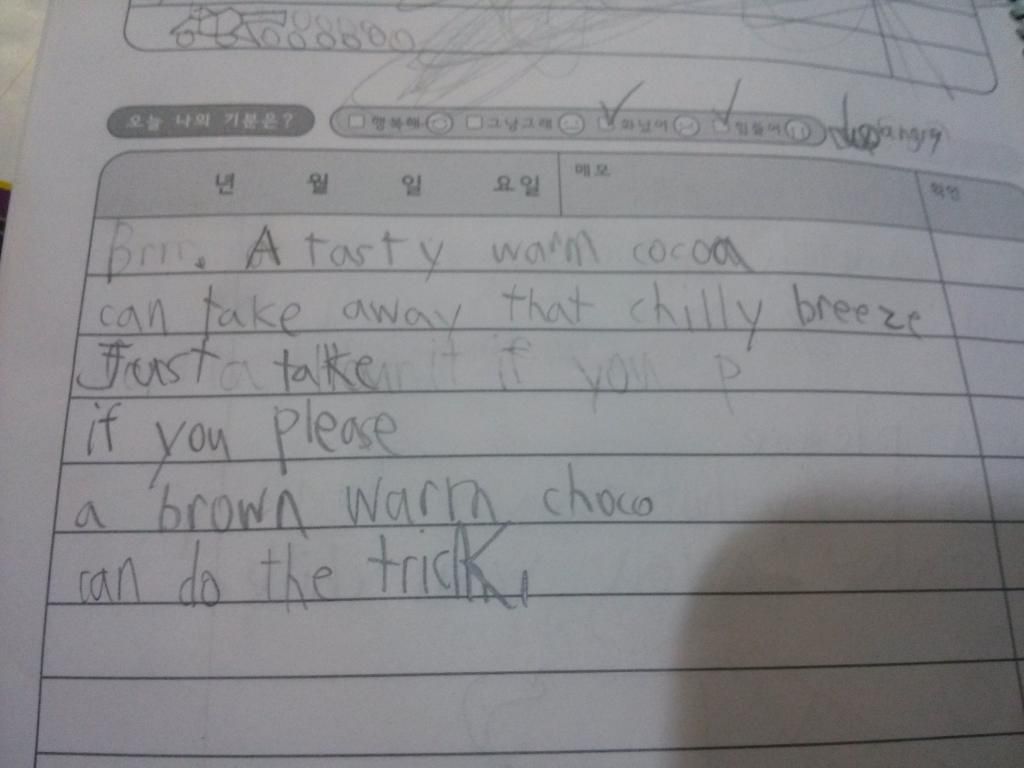 오늘 나의 기분은?
행복해 그냥그래 화났어 힘들어 angry
년 월 일 요일 메모 확인
Brrr. A tasty warm cocoa
can take away that chilly breeze
Just take it if you p
if you please
a brown warm choco
can do the trick.